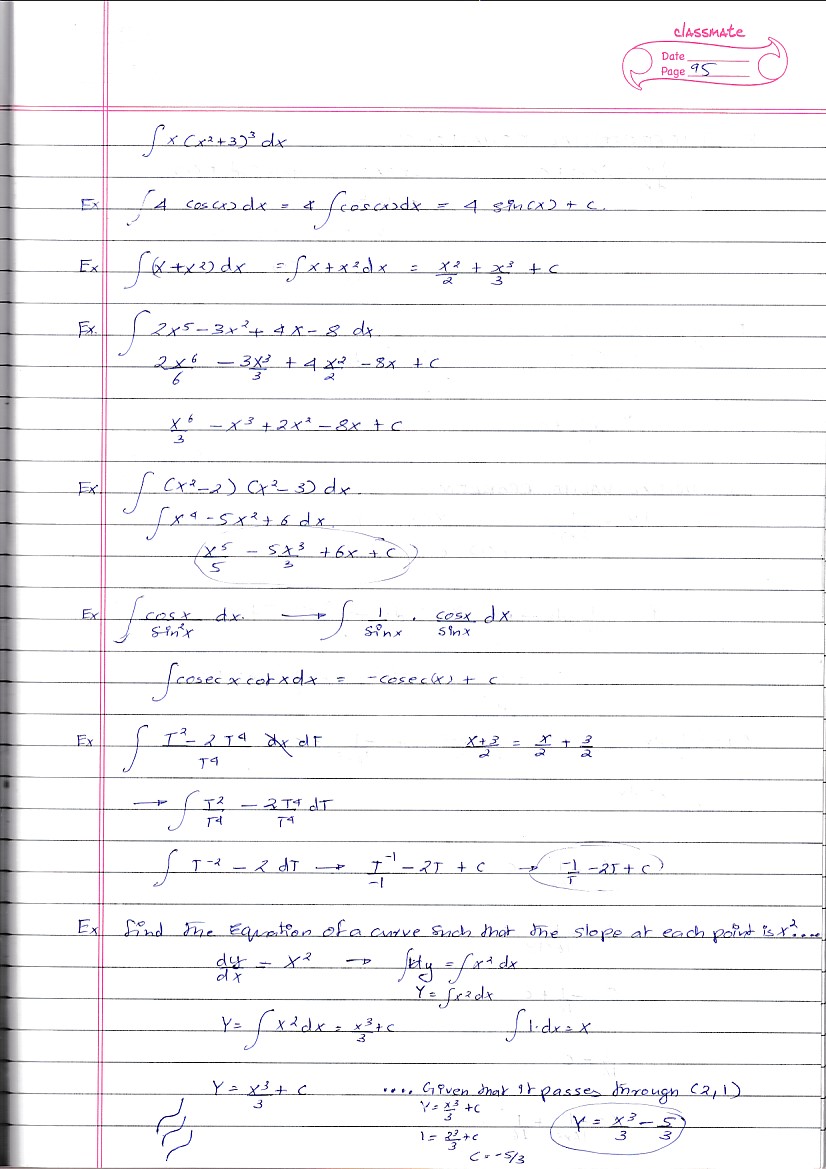 classmate
Date
Page 95
∫ x (x²+3)³ dx
Ex ∫ 4 cos(x) dx = 4 ∫ cos(x) dx = 4 sin(x) + c.
Ex ∫ (x + x²) dx = ∫ x + x² dx = x²/2 + x³/3 + c
Ex. ∫ 2x⁵ - 3x² + 4x - 8 dx.
2x⁶/6 - 3x³/3 + 4x²/2 - 8x + c
x⁶/3 - x³ + 2x² - 8x + c
Ex. ∫ (x²-2) (x²-3) dx.
∫ x⁴ - 5x² + 6 dx.
x⁵/5 - 5x³/3 + 6x + c
Ex ∫ cosx/sin²x dx. → ∫ 1/sinx . cosx/sinx dx
∫ cosec x cot x dx = -cosec(x) + c
Ex ∫ T² - 2T⁴/T⁴ dx dT x+3/2 = x/2 + 3/2
→ ∫ T²/T⁴ - 2T⁴/T⁴ dT
∫ T⁻² - 2 dT → T⁻¹/-1 - 2T + c → -1/T - 2T + c
Ex find the Equation of a curve such that the slope at each point is x²....
dy/dx = x² → ∫dy = ∫x² dx
Y = ∫x² dx
Y = ∫ x² dx = x³/3 + c ∫ 1.dx = x
Y = x³/3 + c .... Given that it passes through (2,1)
Y = x³/3 + c
1 = 2³/3 + c
c = -5/3
Y = x³/3 - 5/3